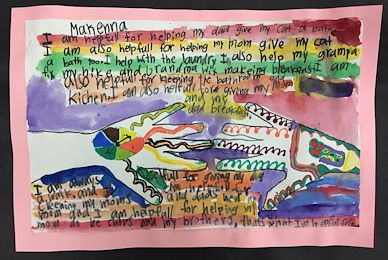 Makenna
I am helpful for helping my dad give my cat a bath
I am also helpfull for helping my mom give my cat
a bath too. I help with the laundry I also help my grampa
fix my bike and grandma with making breakfast. I am
also helpfull for keeping the bathroom and
kichen I am also helfull for giving my mom
and my
dad breakfast
I am always helpfull for giving my
a bath and
cleening my moms and dads
mom and I am helpfull for helping
mom do the chors and my brothers, thats what I'm helpful for